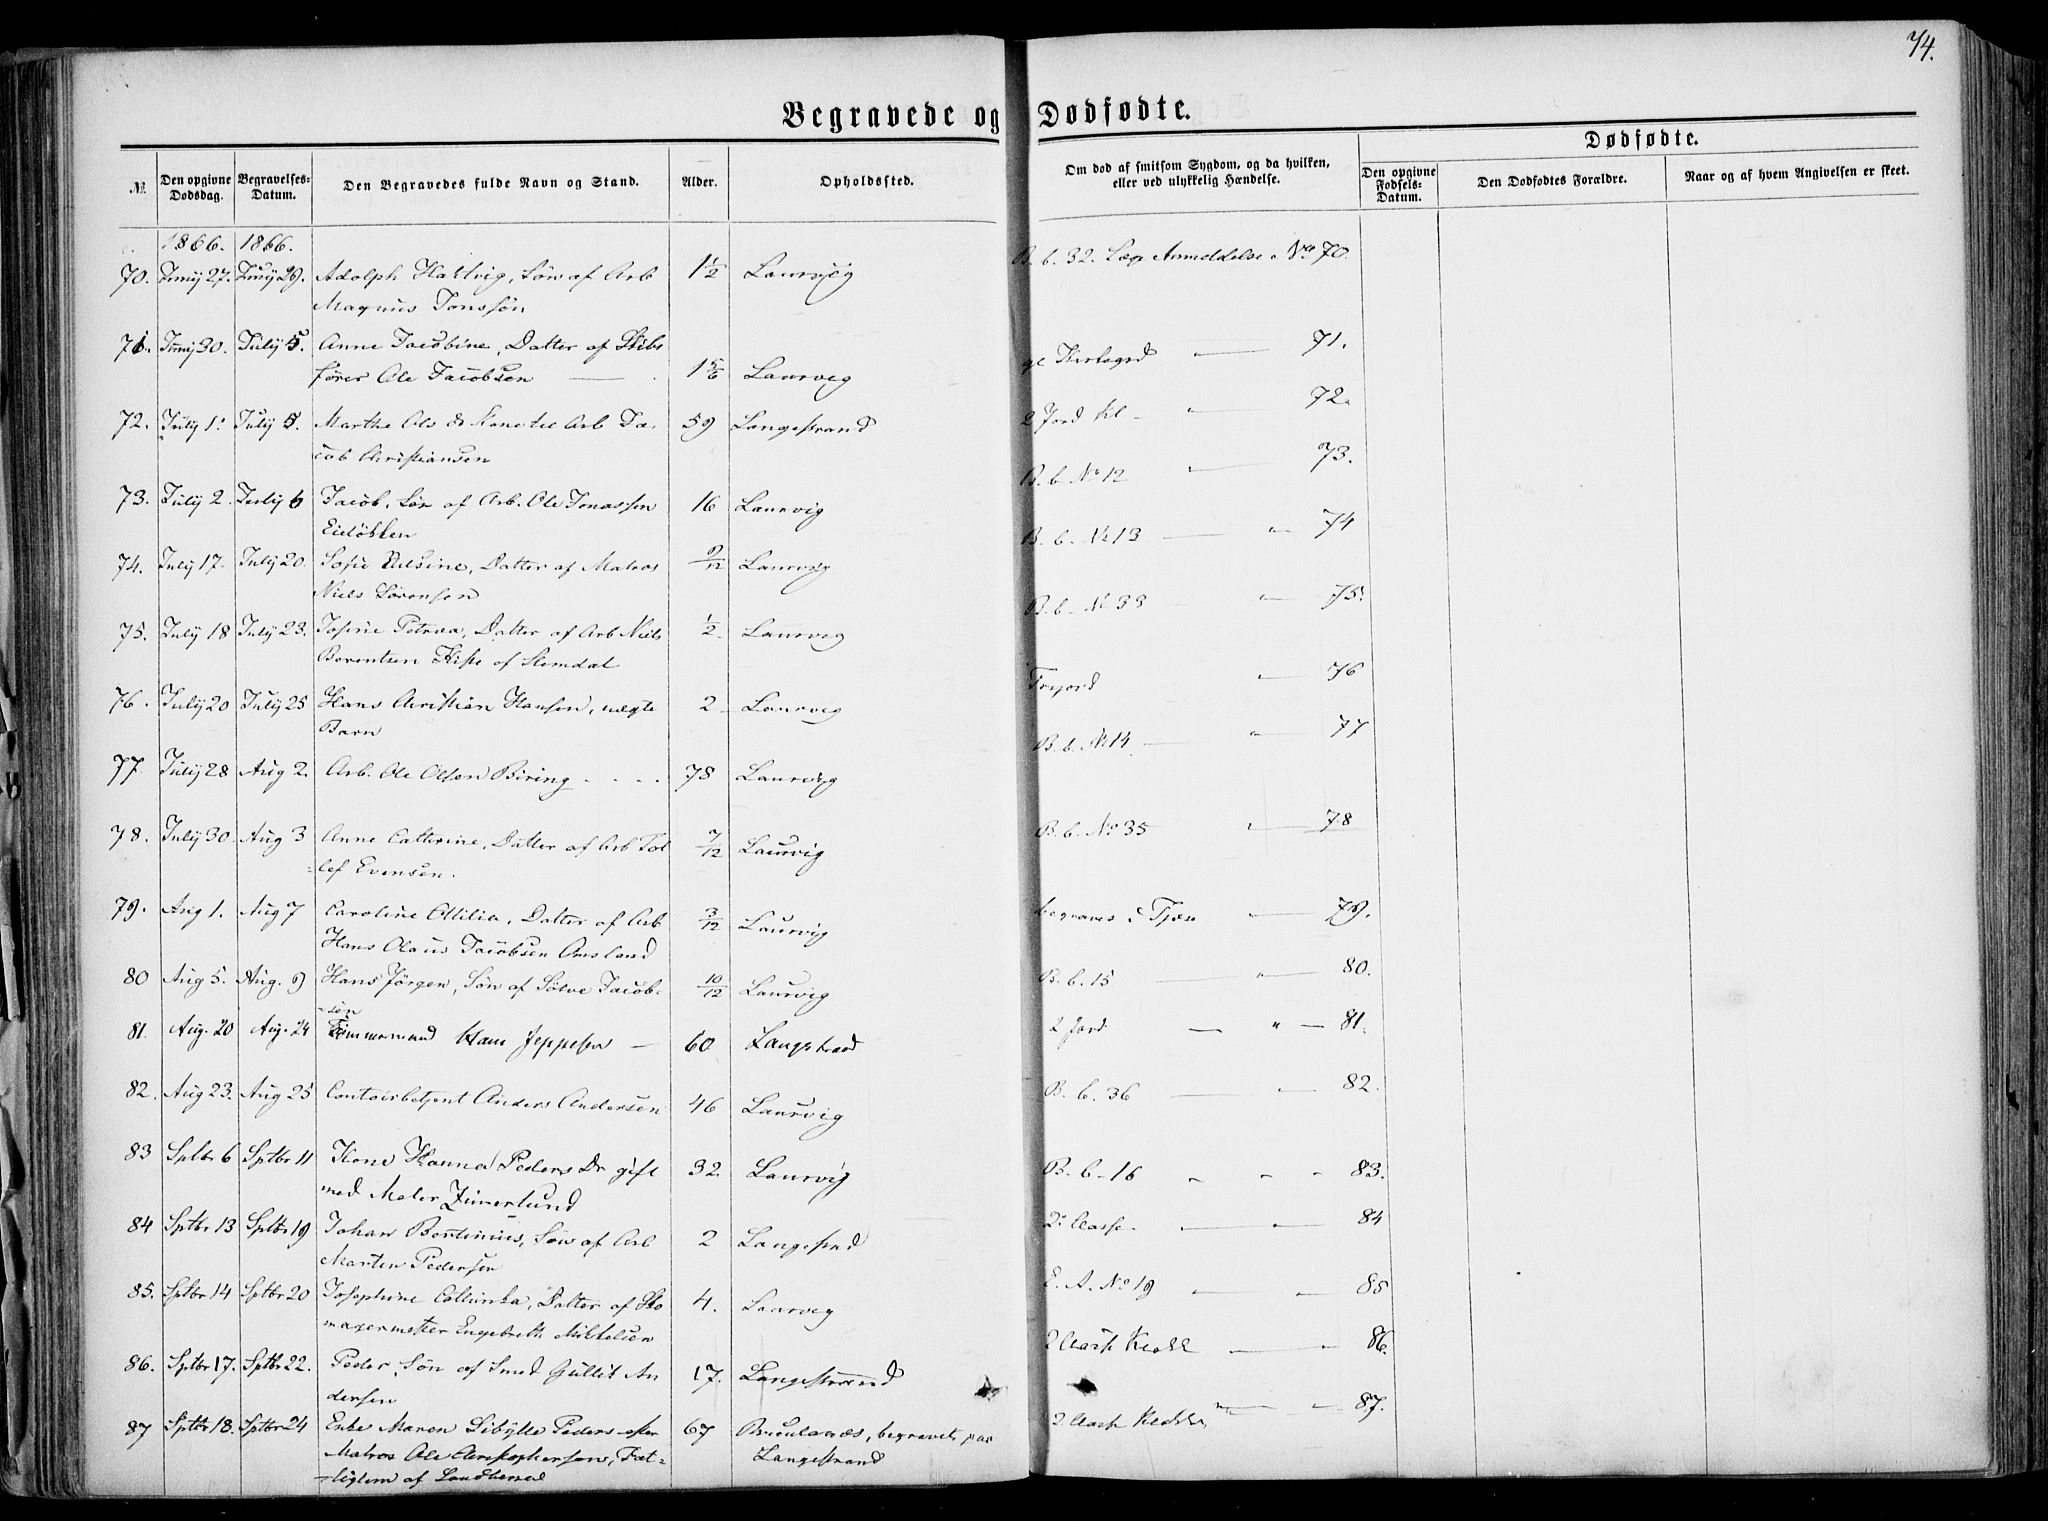 74.
Begravede og Dødfødte.
№
Den opgivne Dødsdag.
Begravelses-Datum.
Den Begravedes fulde Navn og Stand.
Alder.
Opholdssted.
Om død af smitsom Sygdom, og da hvilken, eller ved ulykkelig Hændelse.
Dødfødte.
Den opgivne Fødsels-Datum.
Den Dødfødtes Forældre.
Naar og af hvem Angivelsen er skeet.
1866. 1866.
70. Junij 27. Junij 29. Adolph Hartvig, Søn af Arb 1½ Laurvig B. b. 32. Læge Anmeldelse No 70.
Magnus Jonssøn
71. Junij 30. Julij 5. Anne Jacobine, Datter af Skibs
fører Ole Jacobsen — 1 5/6 Laurvig gl Kirkegrd — " — 71.
72. Julij 1. Julij 5. Marthe Ols Dr Kone til Arb Ja- 59 Langestrand 2 Jord Kl - " — 72.
cob Christiansen
73. Julij 2. Julij 6 Jacob, Søn af Arb. Ole Jonassen 16 Laurvig B. b. No 12 " — 73.
Eidsbkken
74. Julij 17. Julij 20. Sofie Elisine, Datter af Matros 9/12 Laurvig B. b. No 13 — " — 74
Niels Sørensen
75. Julij 18 Julij 23. Josine Petrea, Datter af Arb Niels ½ Laurvig B. b. No 33 — " — 75.
Berentsen af Slemdal
76. Julij 20 Julij 25 Hans Christian Hansen, uægte 2 Laurvig Frijord " — 76
Barn
77. Julij 28 Aug 2. Arb. Ole Olsen Biring - - - - 78 Laurvig B. b. No 14. — " — 77
78. Julij 30 Aug 3 Anne Cathrine, Datter af Arb Tol 7/12 Laurvig B. b. No 35 " — 78
=lef Evensen.
79. Aug 1. Aug 7 Caroline Ottilia, Datter af Arb 3/12 Laurvig begraves i — " — 79.
Hans Olaus Jacobsen Amsland
80 Aug 5. Aug. 9 Hans Jørgen, Søn af Sølve Jacob- 10/12 Laurvig B. b. 15 — " — 80.
=sen
81. Aug. 20 Aug. 24 Tømmermand Hans Jeppesen — 60 Langestrand 2 Jord. — " — 81.
82. Aug 23. Aug 25 Contoirbetjent Anders Andersen 46 Laurvig B. b. 36 — " — 82.
83 Sptbr 6 Sptbr 11 Kone Hanna Peders Dr gift 32. Laurvig B. b - 16 " " " 83.
med Maler Zimerlund
84 Sptbr 13 Sptbr 19 Johan Berntinius, Søn af Arb 2 Langestrnd 2. Classe. — " — 84
Marten Pedersen
85. Sptbr 14 Sptbr 20 Josephine Collinka, Datter af Sko 4. Laurvig E. A. No 19 — " — 85
magermester Engebreth Mikkelsen
86. Sptbr 17. Sptbr 22. Peder, Søn af Smed Gullik An 17. Langestrand 2 Class Klokk — " — 86.
dersen
87 Sptbr 18. Sptbr 24 Enke Maren Sibylle Peders efter 67 Brunlanæs, begravet paa 2 Class Klokk " — " — 87.
Matros Ole Christophersen, Fat- Langestrand
=tiglem af Landherred